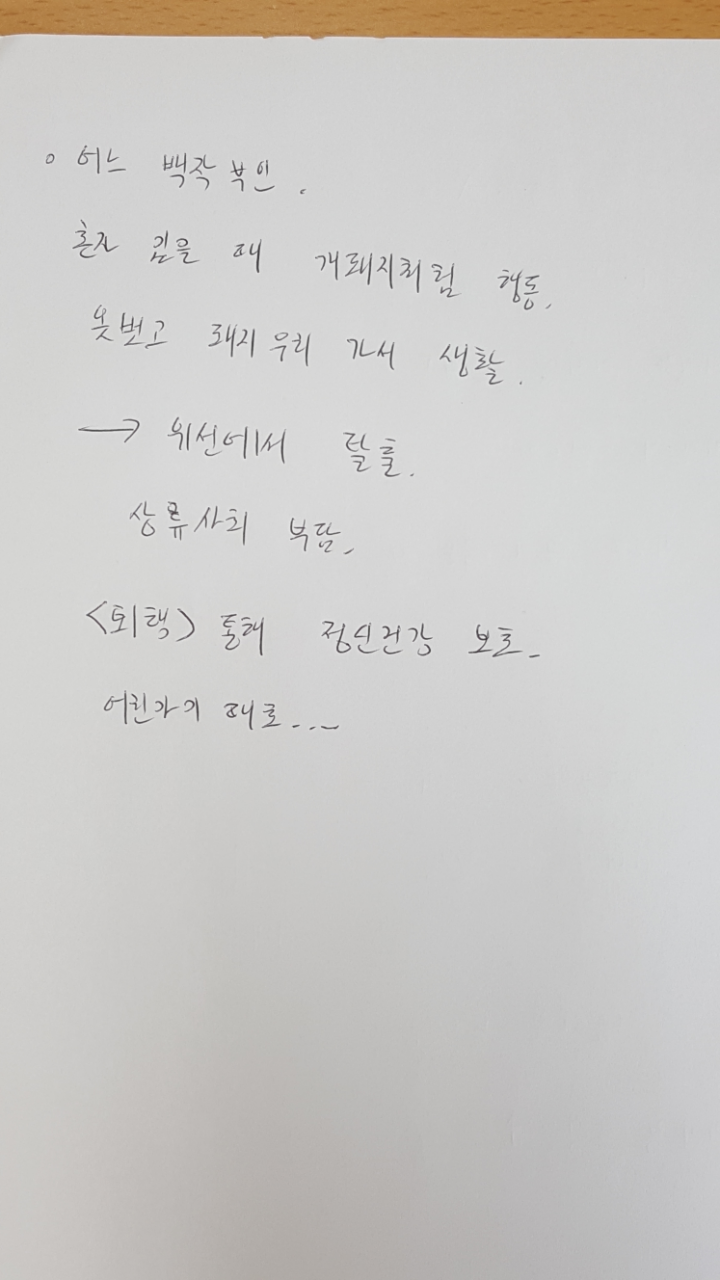 o 어느 백작 부인.
혼자 있을 때 개돼지처럼 행동.
옷벗고 돼지 우리 가서 생활.
→ 위선에서 탈출.
상류사회 부담.
<퇴행> 통해 정신건강 보호.
어린아기 때로...